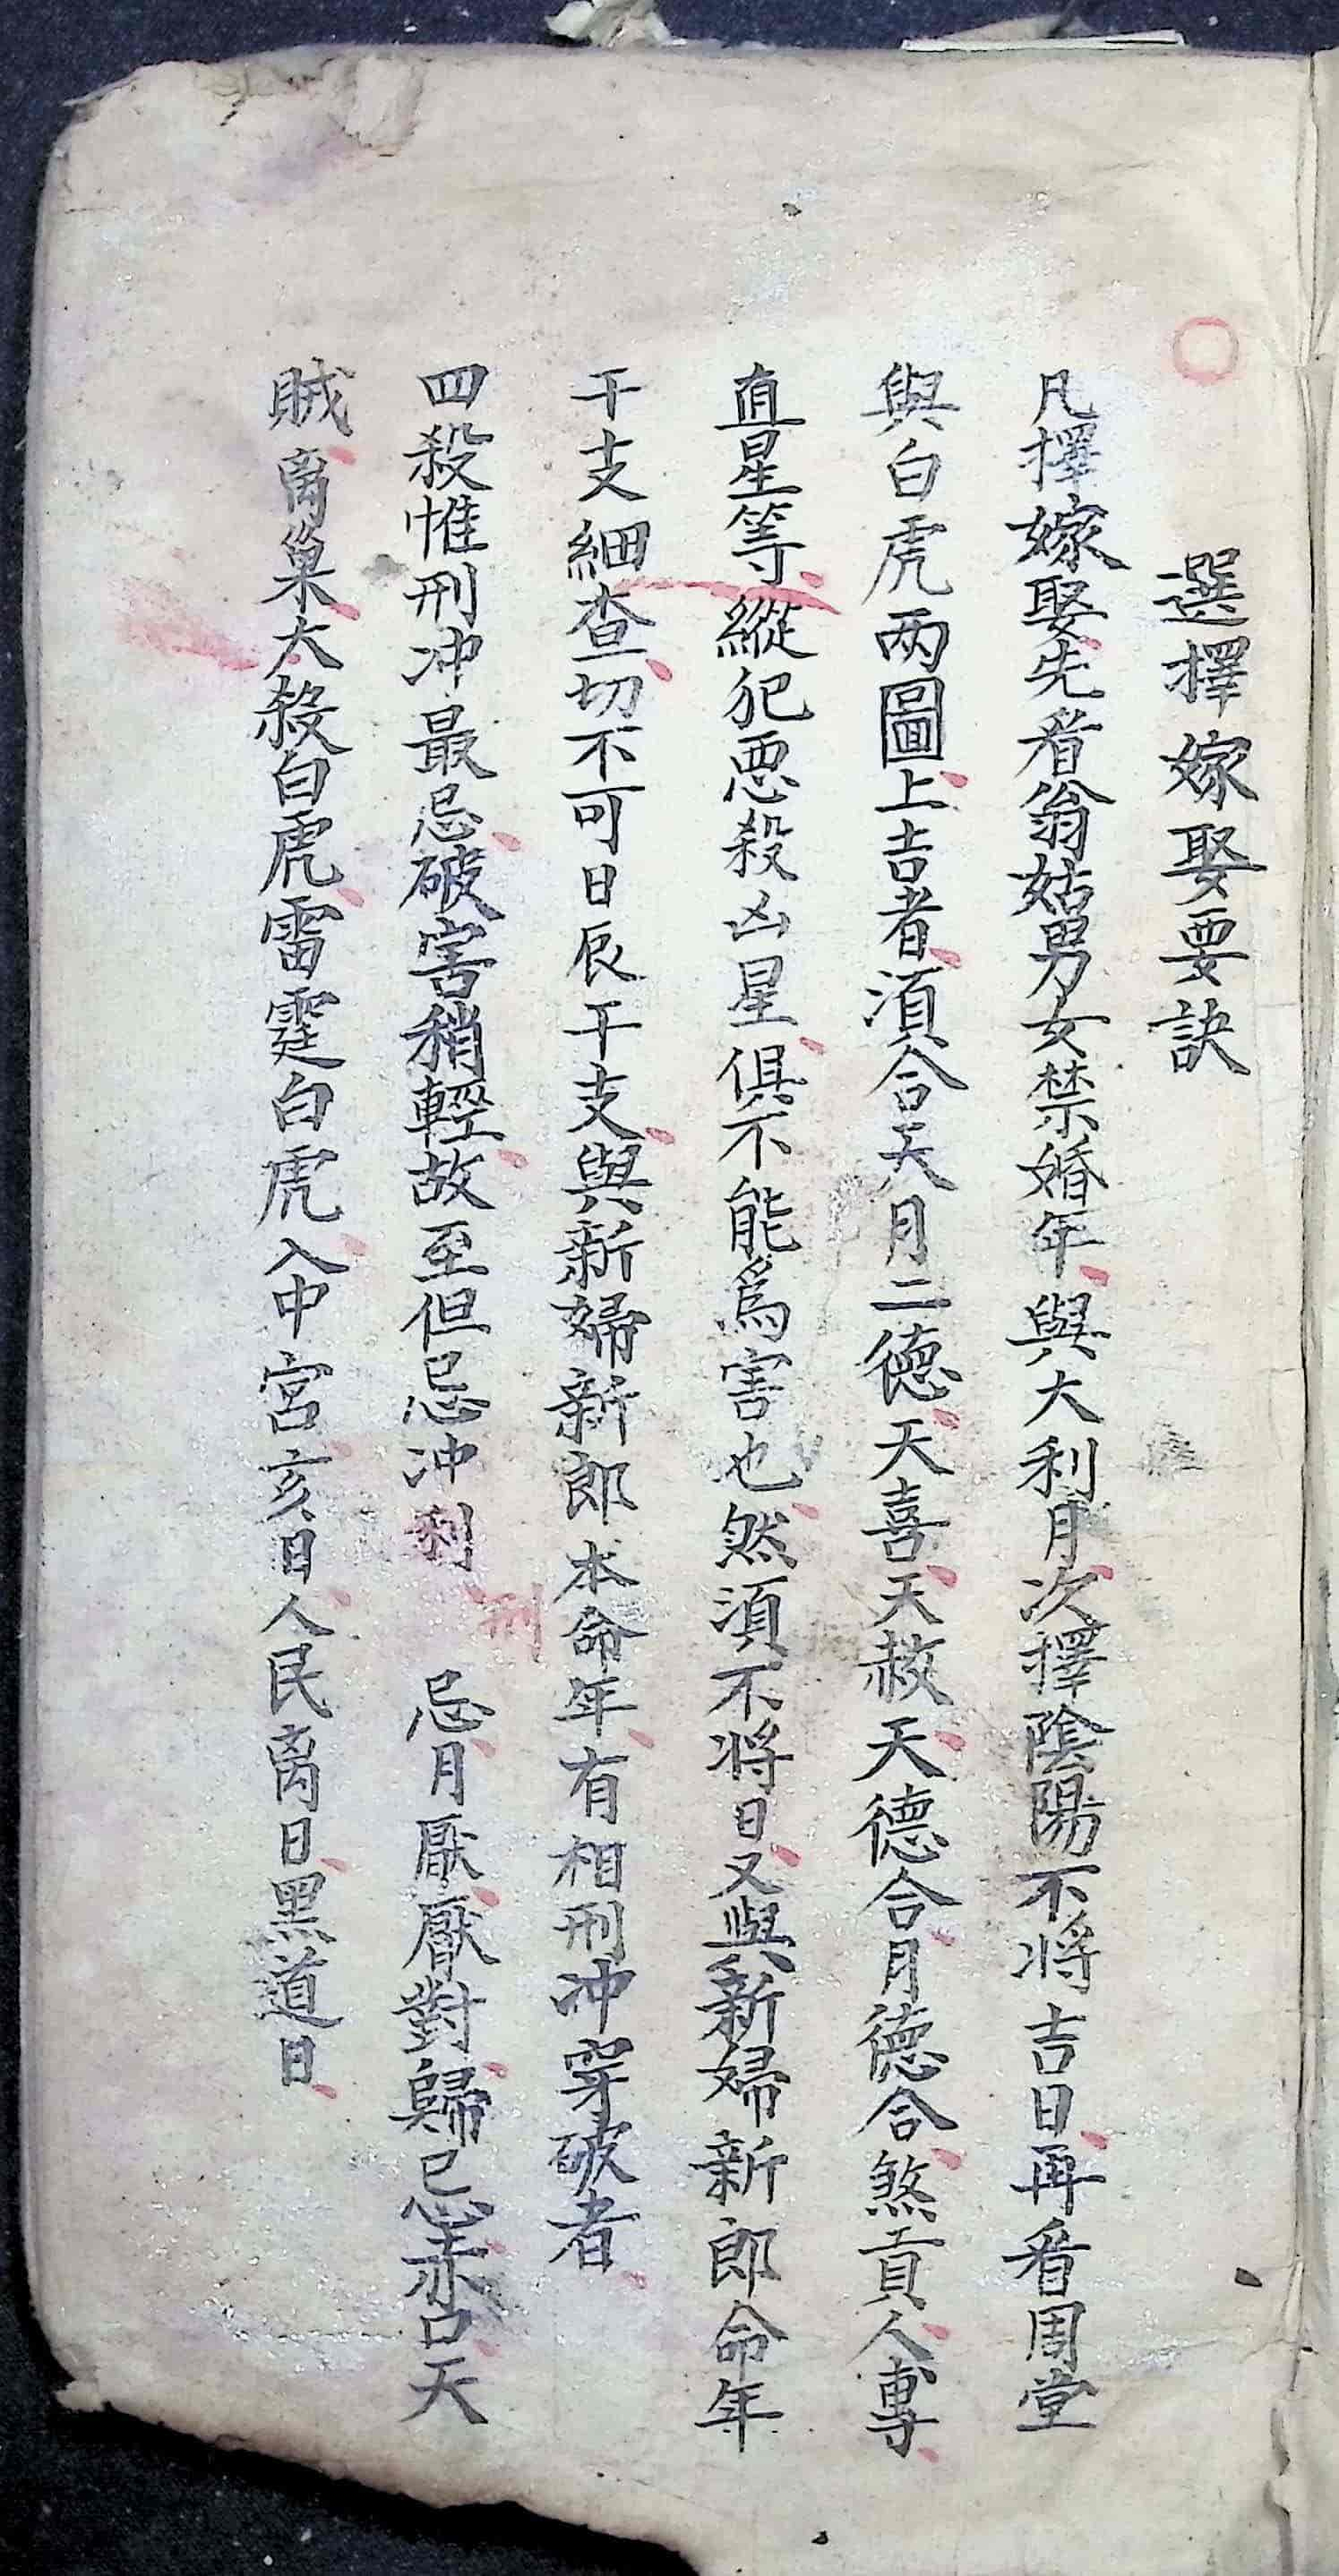 選擇嫁娶要訣
凡擇嫁娶先看翁姑男女禁婚年與大利月次擇陰陽不將吉日再看周堂
與白虎两圖上吉者須合天月二德天喜天赦天德合月德合煞貢人專
直星等縱犯恶殺凶星俱不能為害也然須不將日又與新婦新郎命年
干支細查切不可日辰干支與新婦新郎本命年有相刑冲穿破者
四殺惟刑冲最忌破害稍輕故至但忌冲利刑忌月厭厭對歸忌赤口天
賊离巢大殺白虎雷霆白虎入中宮亥日人民离日黑道日